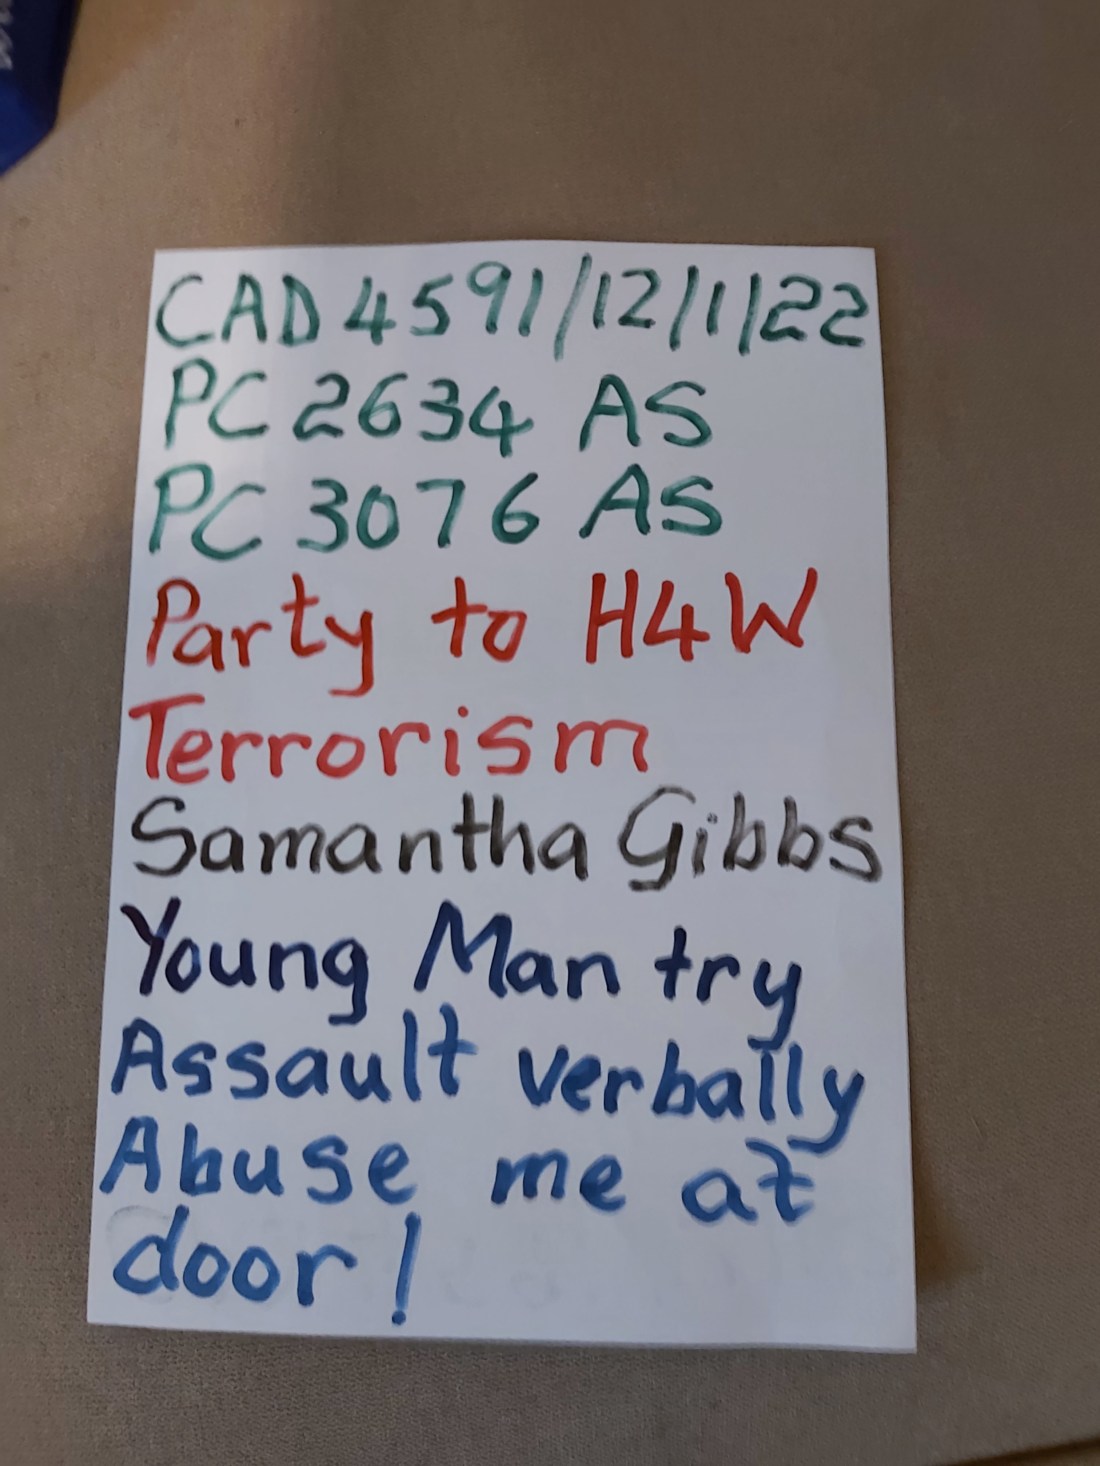 CAD 4591/12/1/22
PC 2634 AS
PC 3076 AS
Party to H4W
Terrorism
Samantha Gibbs
Young Man try
Assault verbally
Abuse me at
door!